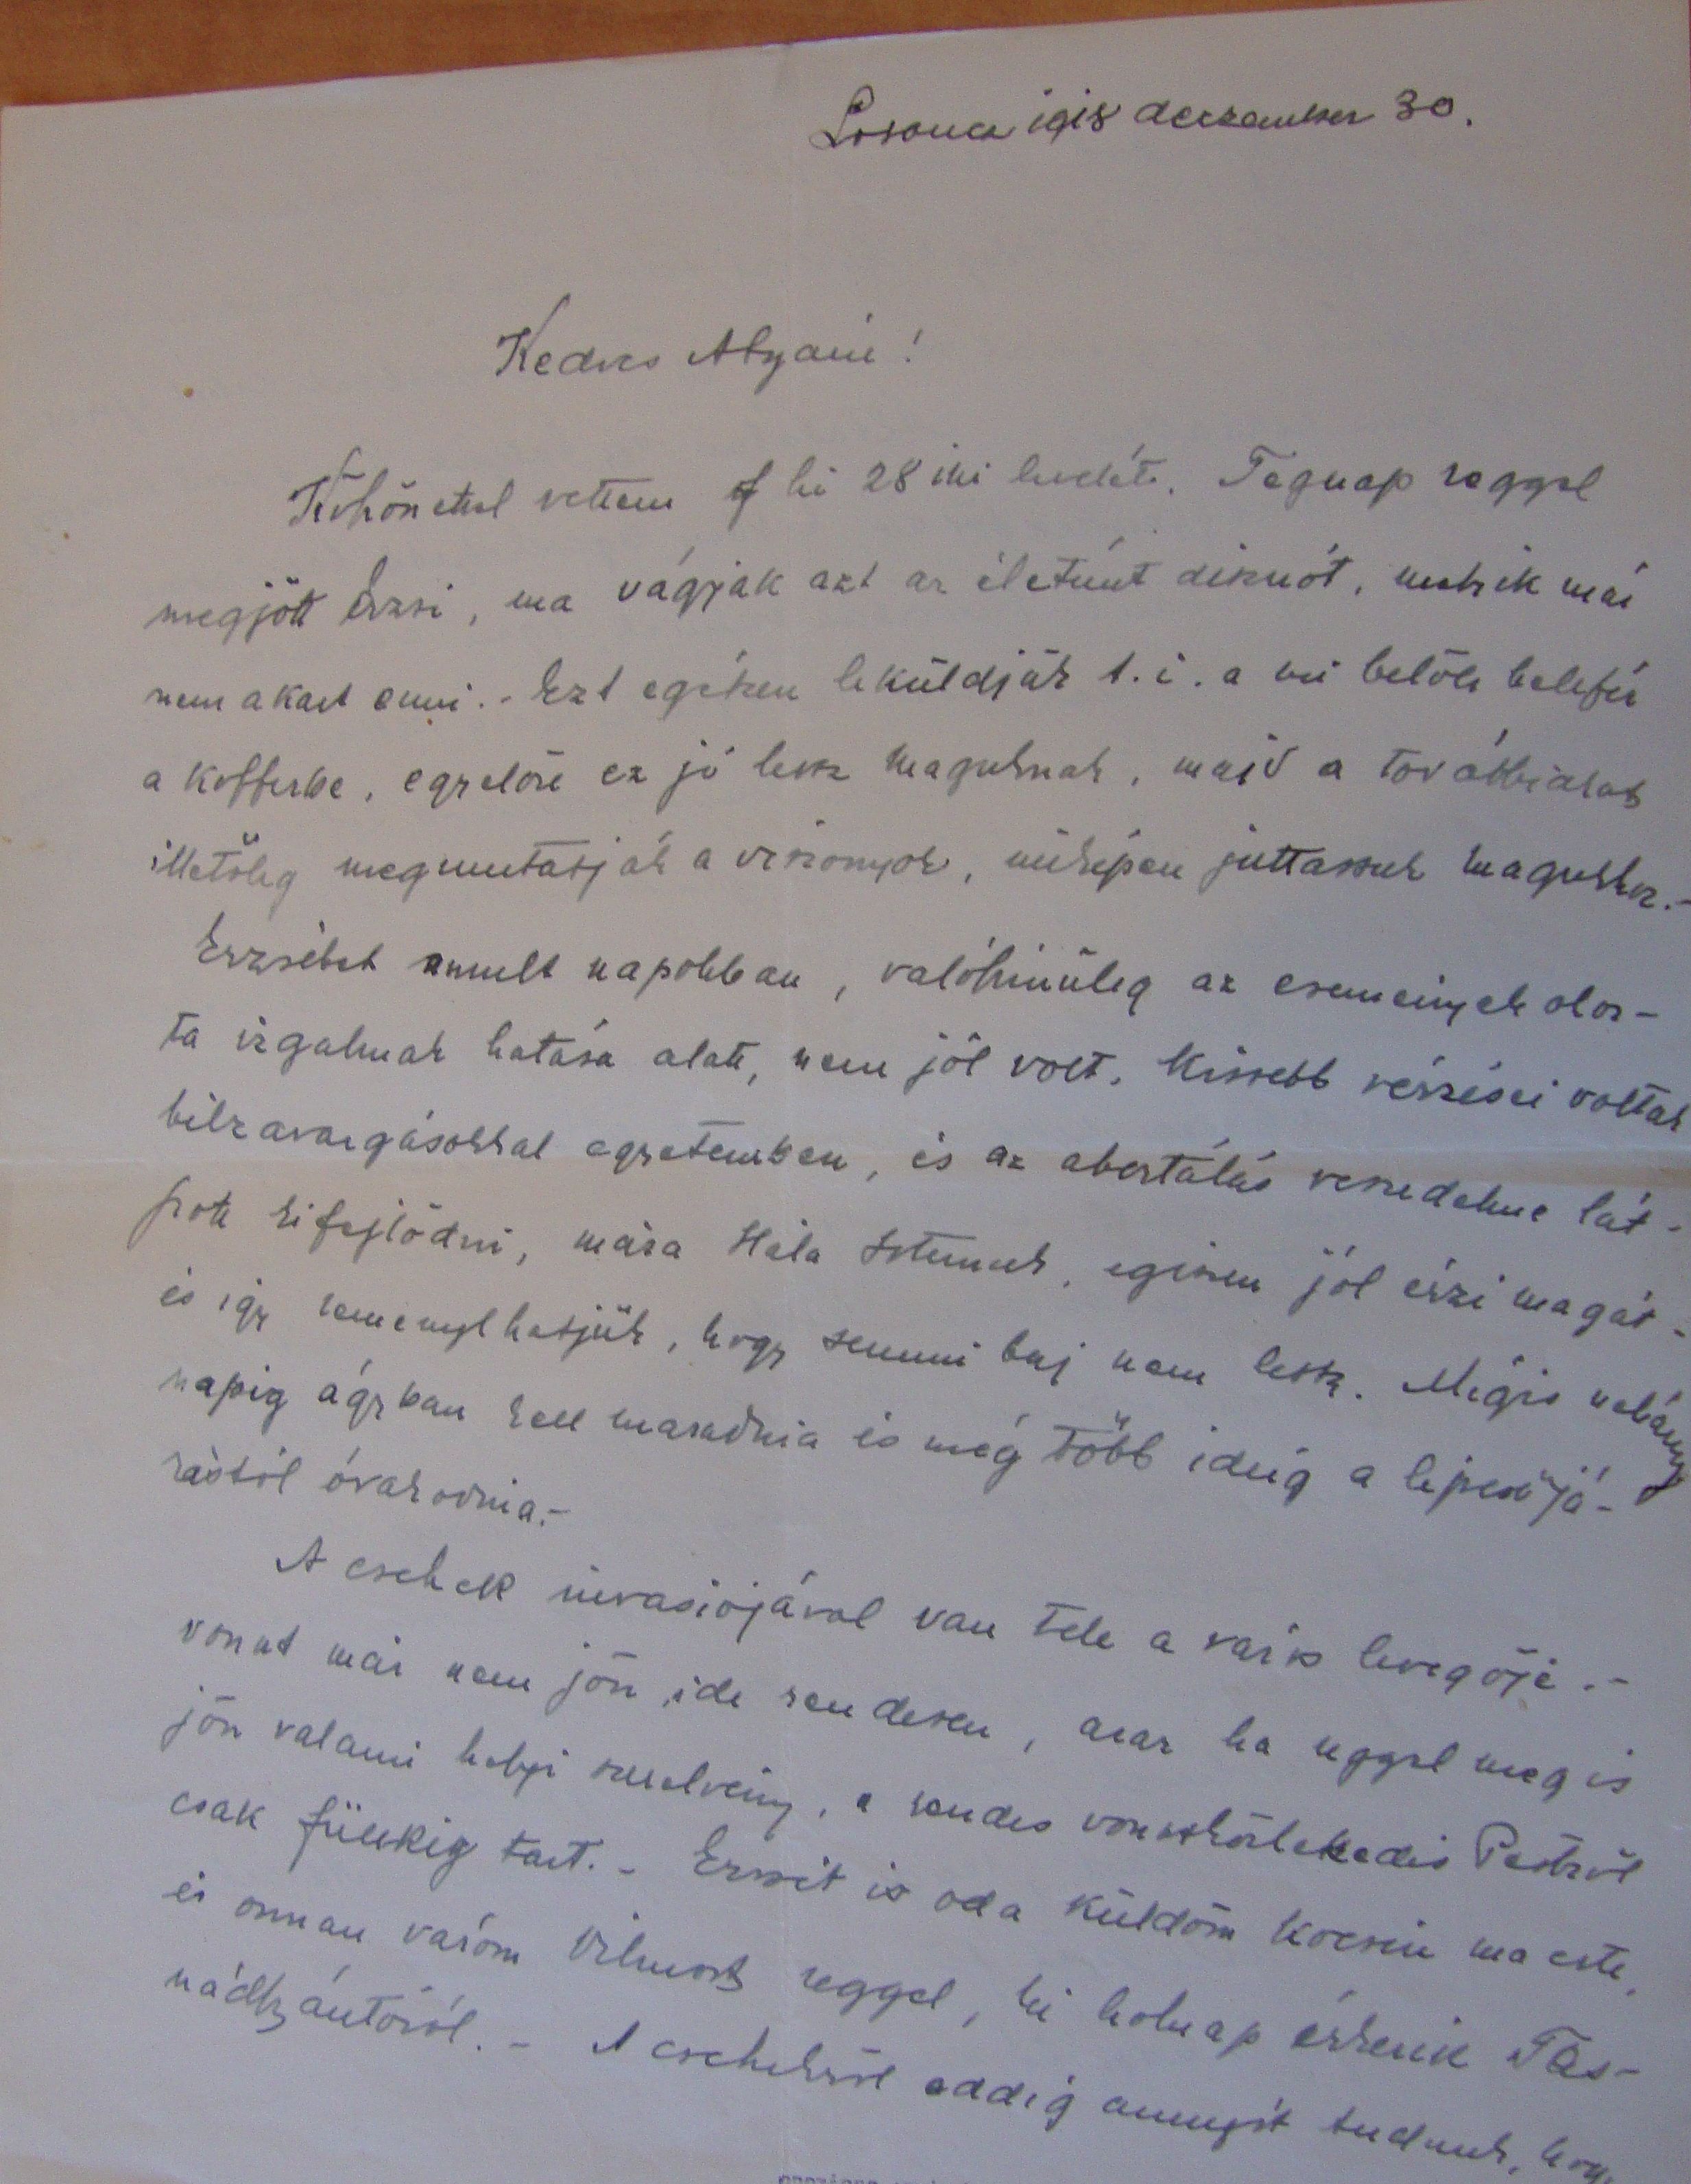 Losoncz 1918 deczember 30.
Kedves Atyám!
Köszönettel vettem f. hó 28 iki levelét. Tegnap reggel
megjött Erzsi, ma vágják azt az életúnt disznót, melyik már
nem akart enni.- Ezt egészen leküldjük t.i. a mi belőle belefér
a kofferbe, egyelőre ez jó lesz maguknak, majd a továbbiakat
illetőleg megmutatják a viszonyok, miképen juttassuk magukhoz.-
Erzsébet a mult napokban, valószinüleg az események okoz-
ta izgalmak hatása alatt, nem jól volt. Kissebb vérzései voltak
bélzavargásokkal egyetemben, és az abortálás veszedelme lát-
szott kifejlődni, mára Hála Istennek, egészen jól érzi magát -
és igy remenylhetjük, hogy semmi baj nem lesz. Mégis néhány
napig ágyban kell maradnia és még több ideig a lépcsőjá-
rástól óvakodnia.-
A csehek invasiojával van tele a város levegője.-
vonat már nem jön ide rendesen, azaz ha reggel meg is
jön valami helyi szerelvény, a rendes vonatközlekedés Pestről
csak Fülekig tart.- Erzsit is oda küldöm kocsin ma este,
és onnan várom Vilmost reggel, ki holnap érkezik Tas-
nádszántóról.- A csehekről eddig annyit tudunk, hogy